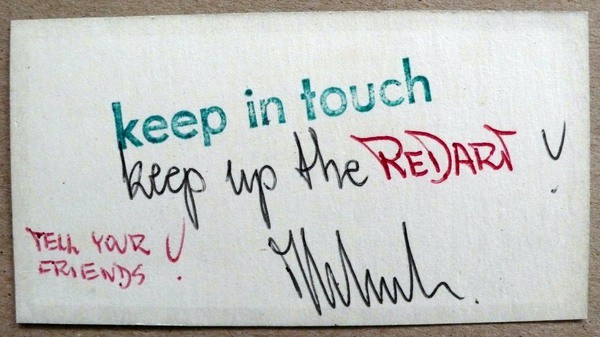 keep in touch
keep up the REDART !
TELL YOUR
FRIENDS !